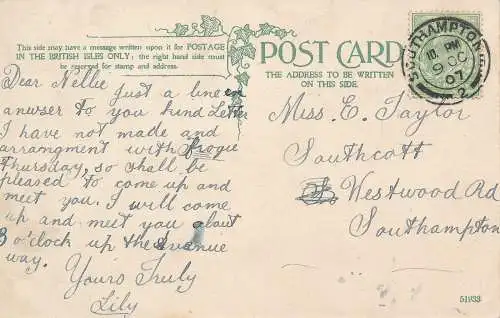 This side may have a message written upon it for POSTAGE
IN THE BRITISH ISLES ONLY; the right hand side must
be reserved for stamp and address.
POST CARD
THE ADDRESS TO BE WRITTEN
ON THIS SIDE.
SOUTHAMPTON
10. PM
9 OC
07
2
Dear Nellie just a line in
anwser to you kind Letter
I have not made and
arrangment with
Thursday, so shall be
pleased to come up and
meet you. I will come
up and meet you about
8 o'clock up the avenue
way.
Yours Truly
Lily
Miss E. Taylor
Southcott
Westwood Rd
Southampton
51933